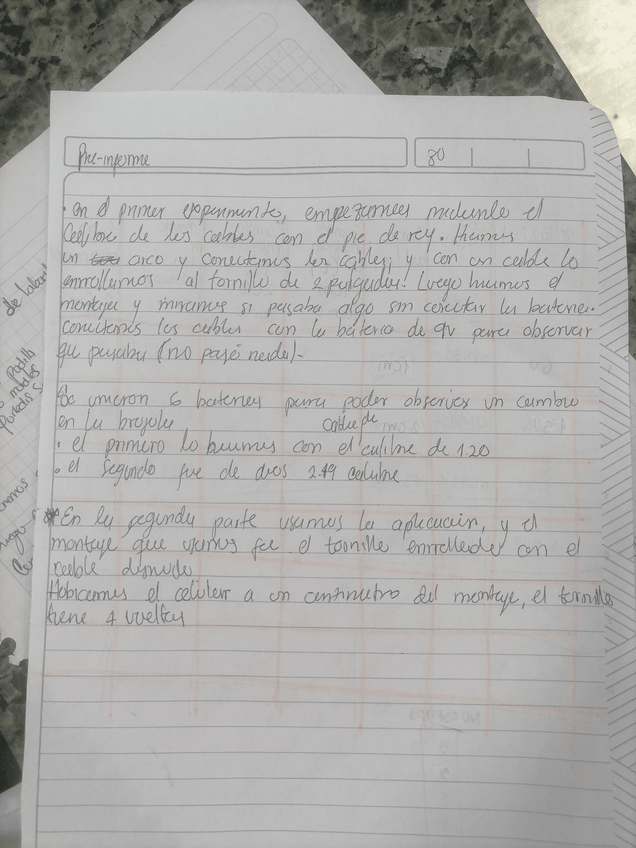 Pre-informe
30
• en el primer experimento, empezamos midiendo el
Calibre de los cables con el pie de rey. Hicimos
un arco y conectamos los cables; y con un cable lo
enrollamos al tornillo de 2 pulgadas! Luego hicimos el
montaje y miramos si pasaba algo sin conectar la bateria.
conectamos los cables con la bateria de 9v para observar
que pasaba (no pasó nada).
Se unieron 6 baterias para poder observar un cambio
en la brujula
cable de
• el primero lo hicimos con el calibre de 1.20
• el segundo fue de dos 2.49 calibre
* En la segunda parte usamos la aplicación, y el
montaje que usamos fue el tornillo enrollado con el
cable desnudo
Hubicamos el celular a un centimetro del montaje, el tornillo
tiene 4 vueltas
de labor